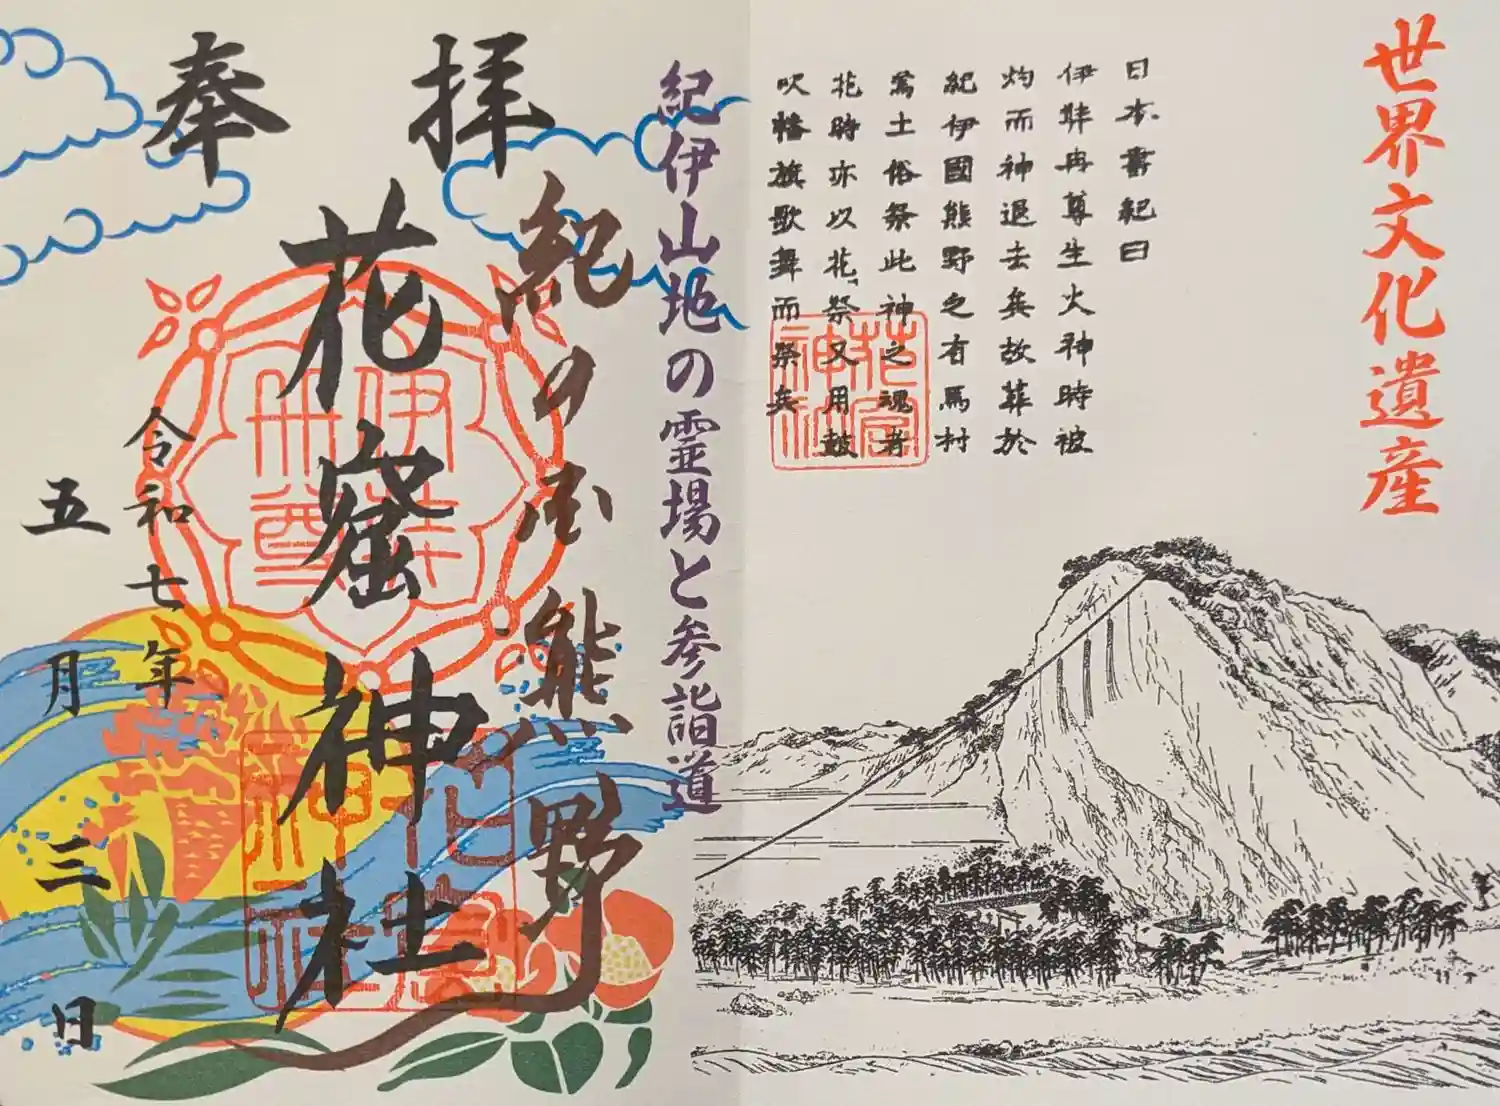 世界文化遺産
日本書紀曰
伊弉冉尊生火神時被
灼而神退去矣故葬於
紀伊國熊野之有馬村
焉土俗祭此神之魂者
花時亦以花祭又用鼓
吹幡旗歌舞而祭矣
花窟神社
紀伊山地の霊場と参詣道
奉拝
紀の国熊野
花窟神社
伊弉冊尊
花窟神社
令和七年
五月三日